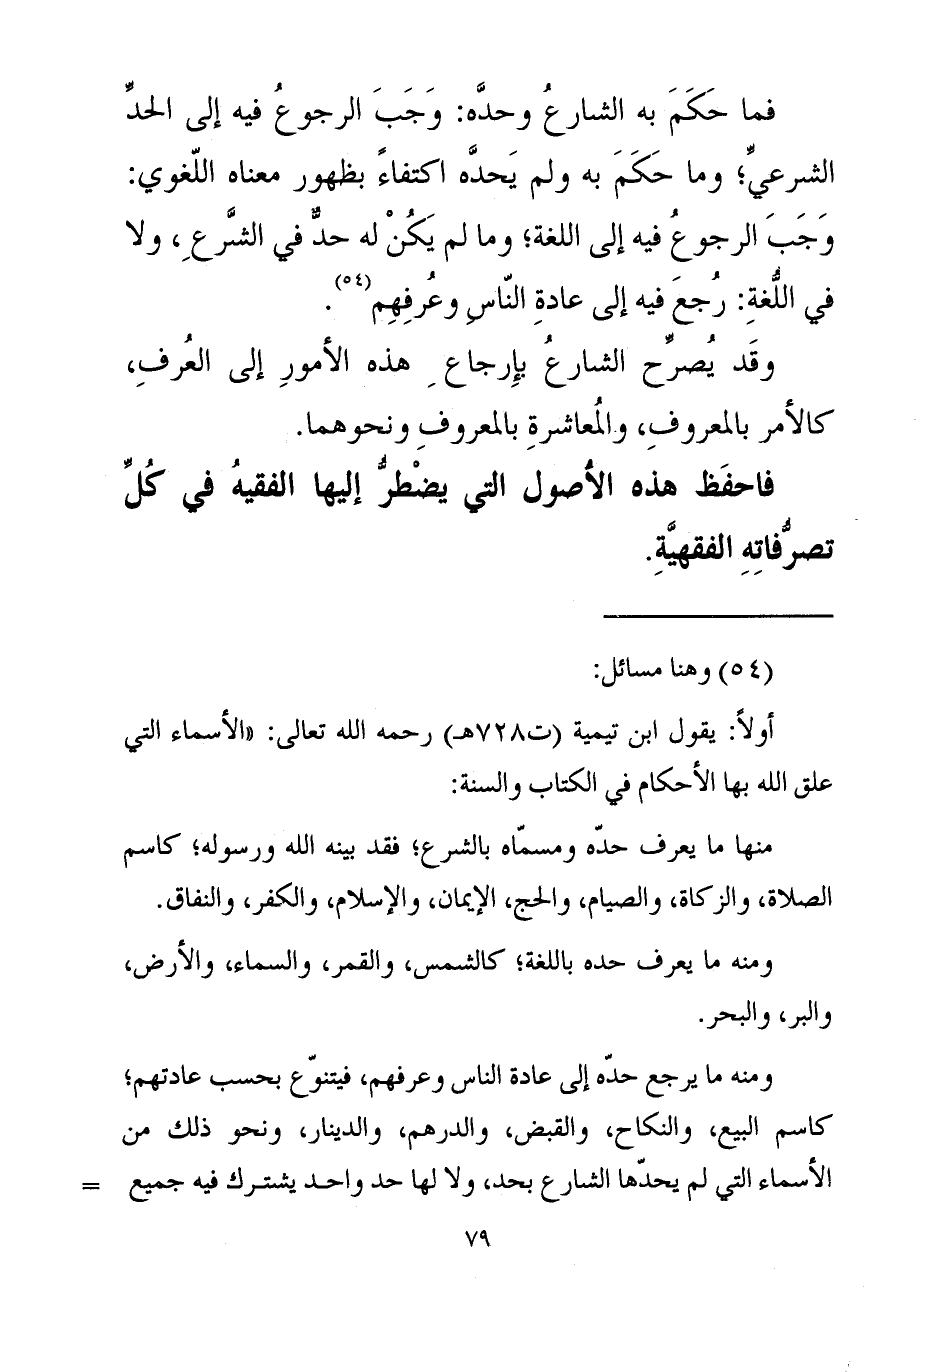 فما حَكَمَ به الشارعُ وحدَّه: وَجَبَ الرجوعُ فيه إلى الحدِّ
الشرعيِّ؛ وما حَكَمَ به ولم يَحدَّه اكتفاءً بظهور معناه اللّغوي:
وَجَبَ الرجوعُ فيه إلى اللغة؛ وما لم يَكُنْ له حدٌّ في الشَّرعِ، ولا
في اللُّغةِ: رُجعَ فيه إلى عادةِ النّاسِ وعُرفِهِم(٥٤).
وقَد يُصرِّح الشارعُ بإِرجاعِ هذه الأمورِ إلى العُرفِ،
كالأمر بالمعروفِ، والمُعاشرةِ بالمعروفِ ونحوهما.
فاحفَظ هذه الأُصول التي يضْطرُّ إليها الفقيهُ في كُلِّ
تصرُّفاتِهِ الفقهيَّةِ.
(٥٤) وهنا مسائل:
أولاً: يقول ابن تيمية (ت٧٢٨هـ) رحمه الله تعالى: «الأسماء التي
علق الله بها الأحكام في الكتاب والسنة:
منها ما يعرف حدّه ومسمّاه بالشرع؛ فقد بينه الله ورسوله؛ كاسم
الصلاة، والزكاة، والصيام، والحج، الإيمان، والإسلام، والكفر، والنفاق.
ومنه ما يعرف حده باللغة؛ كالشمس، والقمر، والسماء، والأرض،
والبر، والبحر.
ومنه ما يرجع حدّه إلى عادة الناس وعرفهم، فيتنوّع بحسب عادتهم؛
كاسم البيع، والنكاح، والقبض، والدرهم، والدينار، ونحو ذلك من
الأسماء التي لم يحدّها الشارع بحد، ولا لها حد واحد يشترك فيه جميع =
٧٩